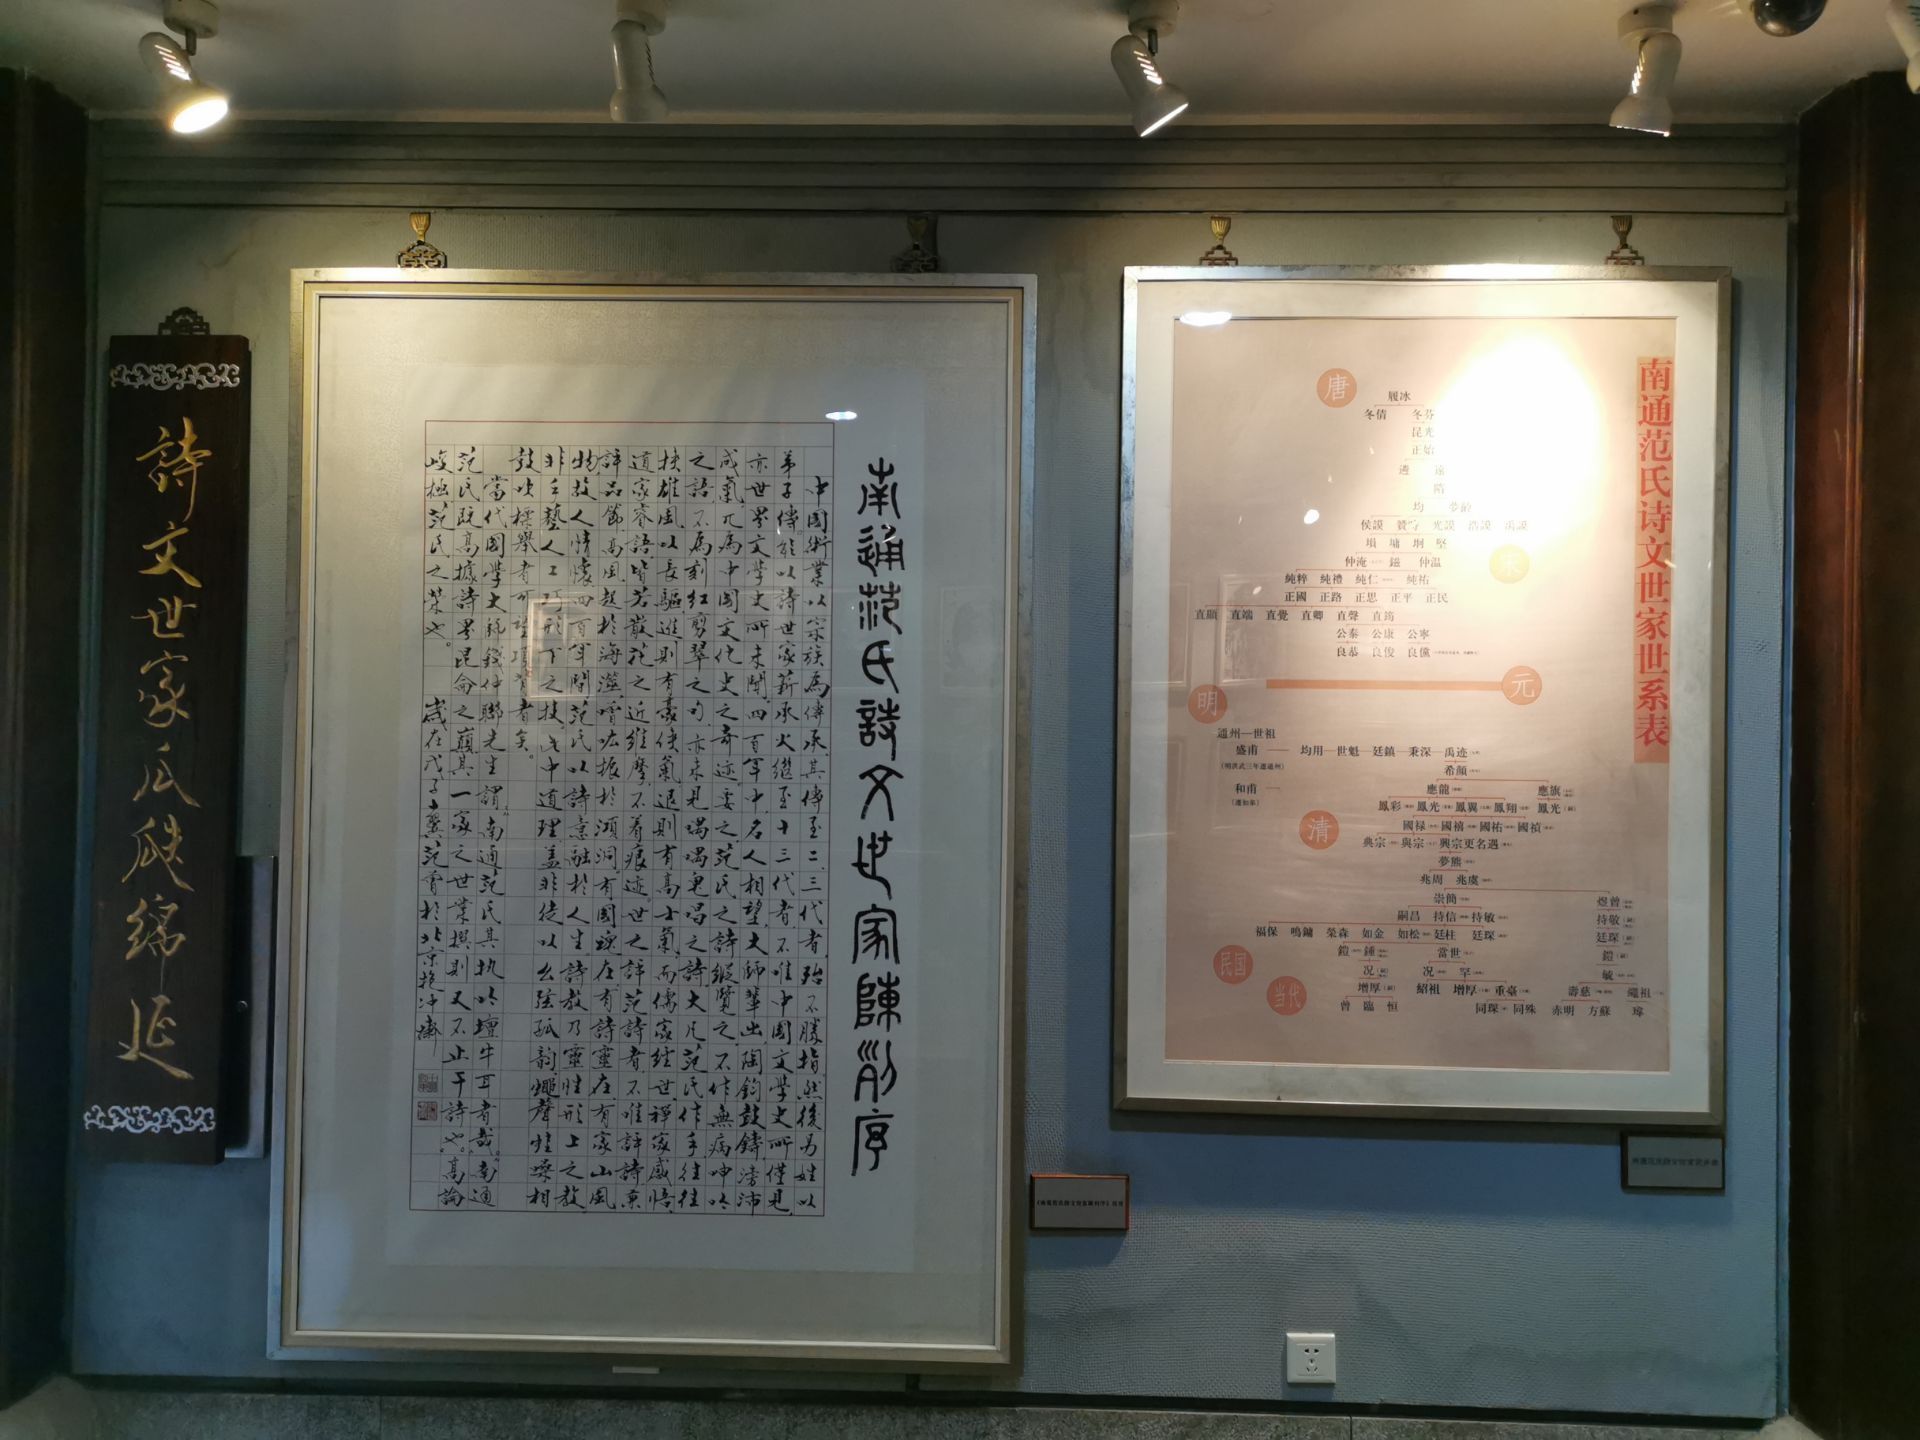 詩文世家瓜瓞綿延
南通范氏詩文世家陳列序
中國術業以宗族為傳承其傳至二三代者殆不勝指然後易姓以
弟子傳於以詩世家薪承火繼至十三代者不唯中國文學史所僅見
亦世界文學史所未聞四百年中名人相望大師輩出陶鈞鼓鑄滂沛
成氣兀為中國文化史之奇迹要之范氏之詩縱覽之不作無病呻吟
之語不為刻紅剪翠之句亦未見喁喁鬼唱之詩大凡范氏作手往往
挾雄風以長驅進則有豪俠氣退則有高士氣而儒家經世禪家感悟
道家睿語皆若散花之近維摩不着痕迹世之評范詩者不唯評詩兼
評品節高風起於海滋噌吰振於澒洞有國魂在有詩靈在有家山風
物故人情懷四百年間范氏以詩意融於人生詩教乃靈性形上之教
非手藝人工巧形下之技此中道理蓋非徒以幺弦孤韵蠅聲蛙噪相
鼓吹標舉者可望項背者矣。
當代國學大氐錢仲聯先生謂南通范氏其執吟壇牛耳者哉南通
范氏既高據詩界昆侖之巔其一家之世業撰則又不止于詩也高論
峻極范氏之榮也。
歲在戊子十翼范曾於北京抱冲齋
南通范氏诗文世家世系表
唐
履冰
冬倩 冬芬
昆光
正始
遴 遠
隋
均 夢齡
侯謨 贊時 光謨 浩謨 禹謨
埙 墉 坰 堅
仲淹 鎡 仲温
純粹 純禮 純仁 純祐
宋
正國 正路 正思 正平 正民
直顯 直端 直覺 直卿 直聲 直筠
公泰 公康 公寧
良恭 良俊 良儻
元
明
通州一世祖
盛甫 均用 世魁 廷鎮 秉深 禹迹
(明洪武三年遷通州)
希顏
和甫
應龍 應旗
鳳彩 鳳光 鳳翼 鳳翔 鳳光
清
國禄 國禧 國祐 國禎
典宗 與宗 興宗更名遇
夢熊
兆周 兆虞
崇簡 煜曾
嗣昌 持信 持敏 持敏
福保 鳴鏞 榮森 如金 如松 廷柱 廷琛 廷琛
民国
鎧 鍾 當世 鎧
况 况 罕 毓
当代
增厚 紹祖 增厚 重臺 壽慈 繩祖
曾 臨 恒 同琛 同殊 赤明 方蘇 瑋